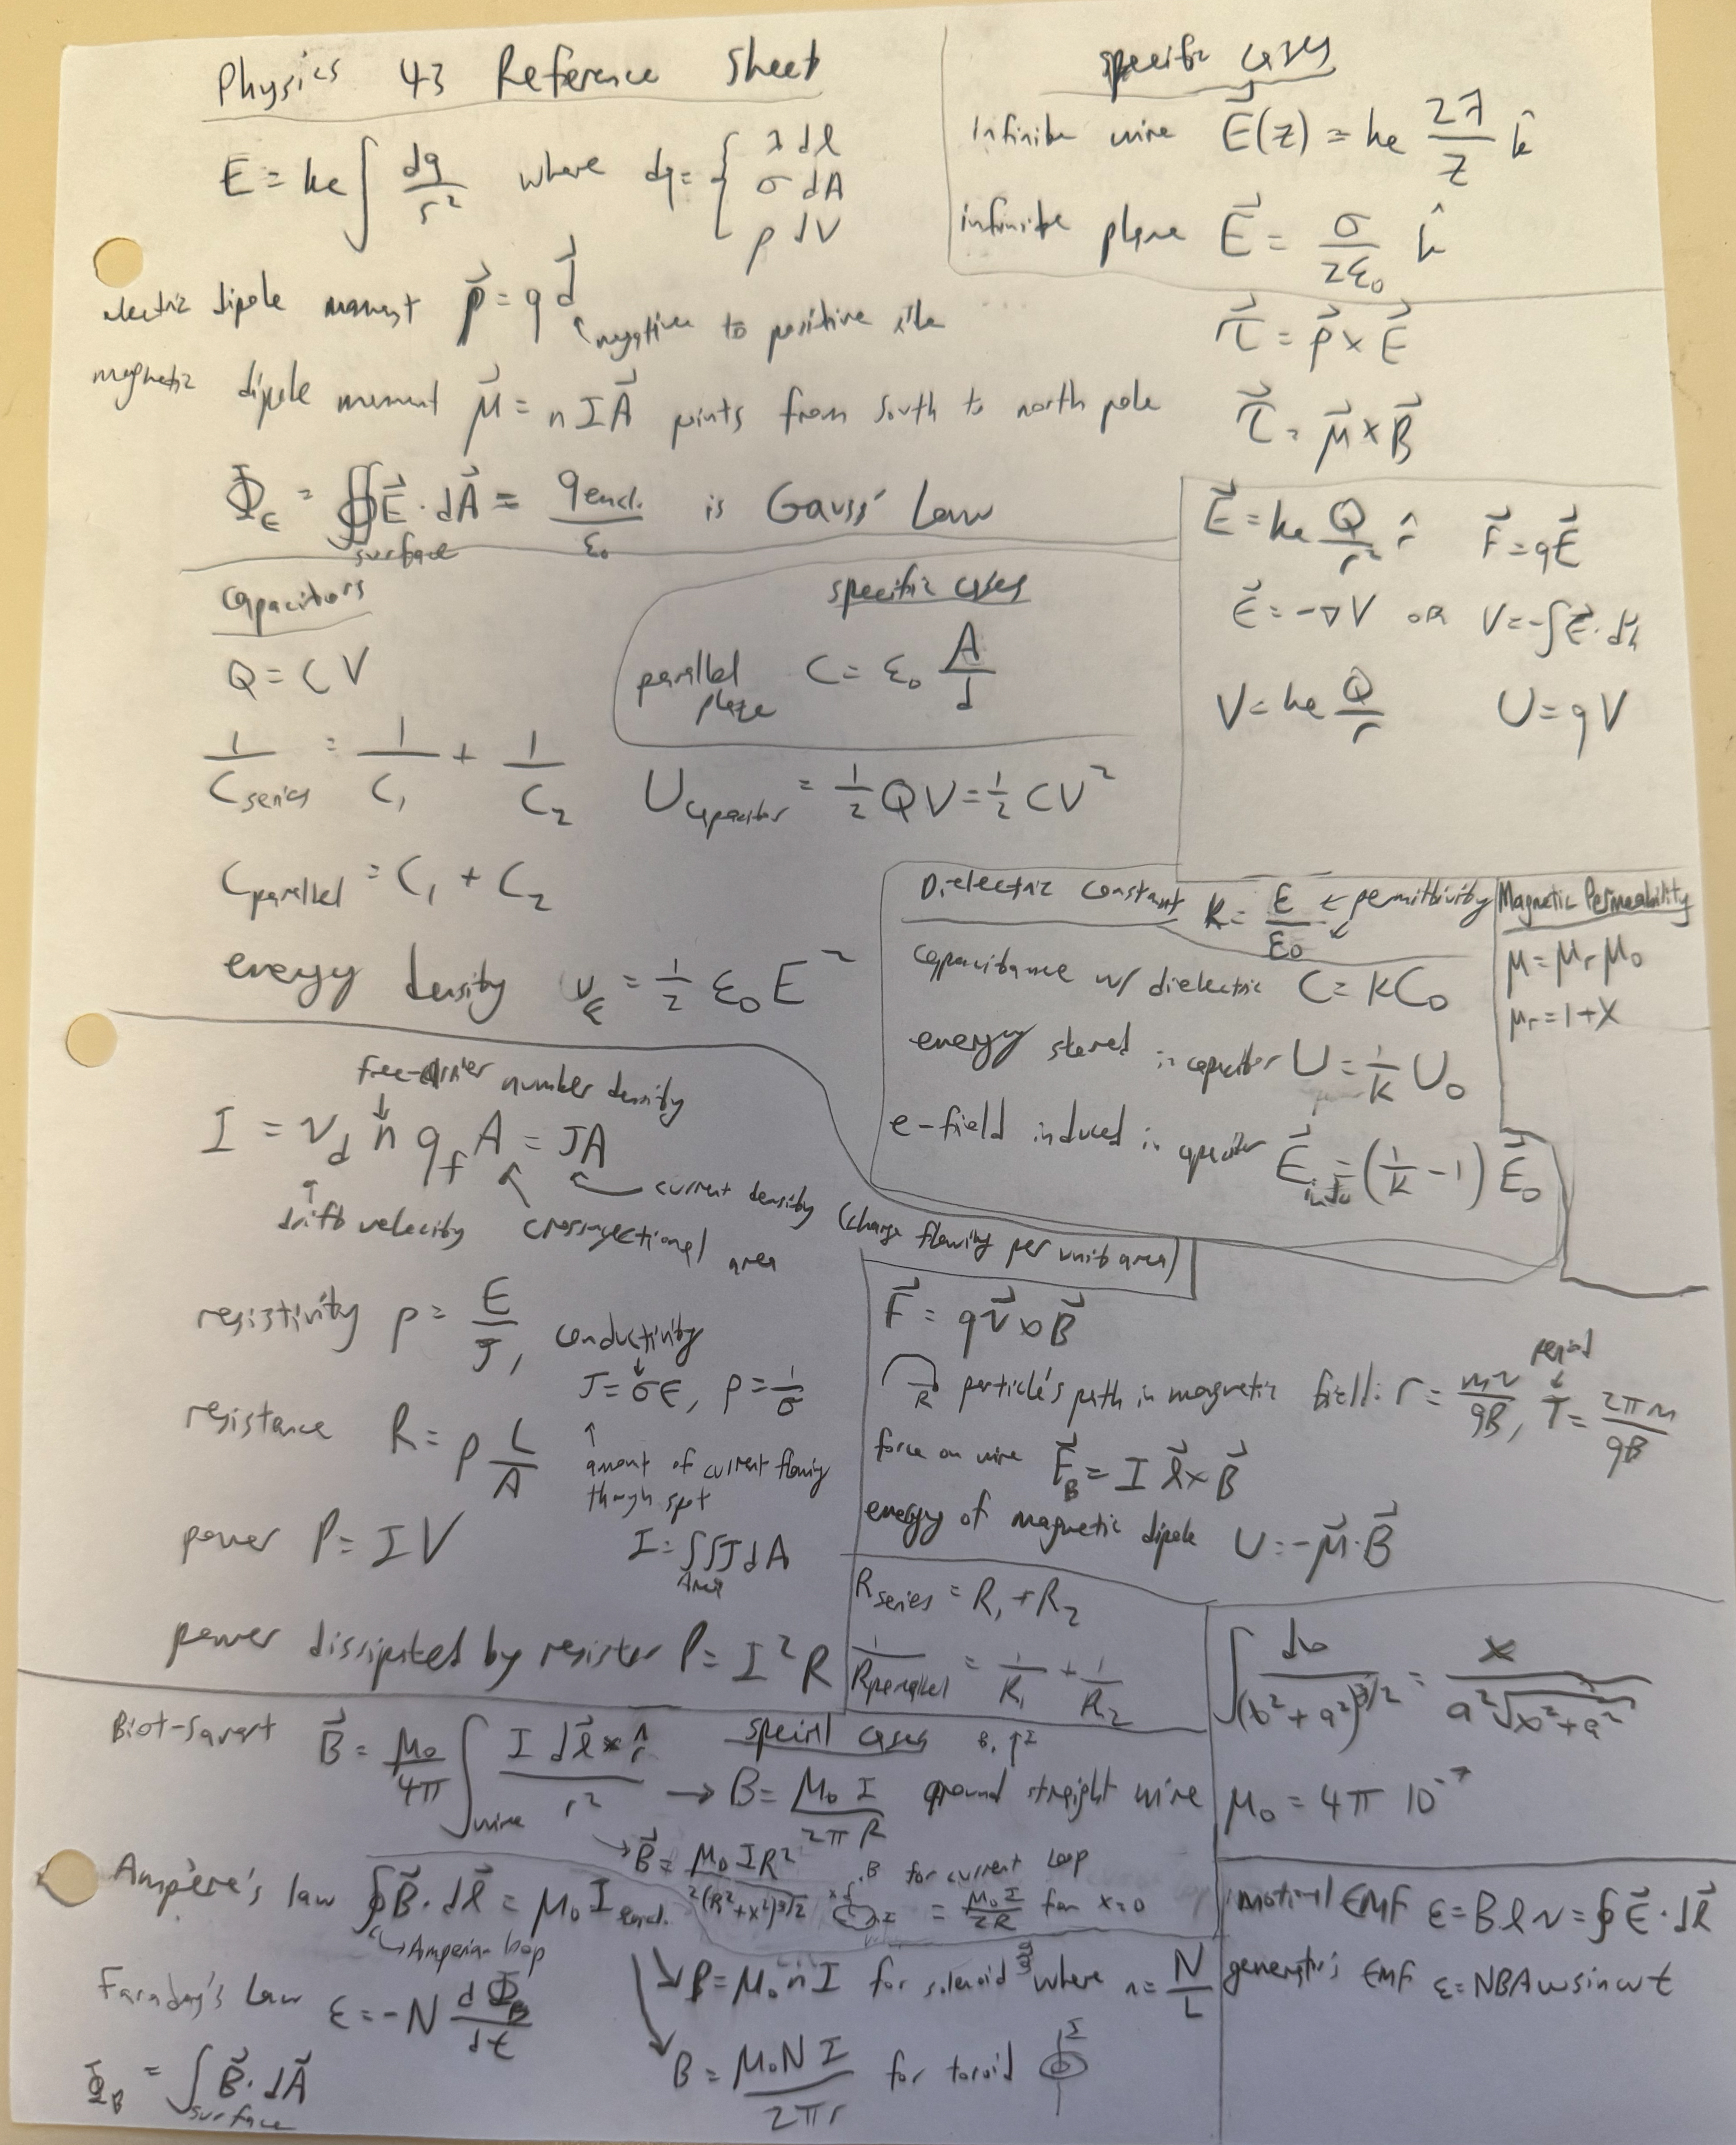 Physics 43 Reference Sheet
E = ke ∫ dq/r² where dq = { λ dl
σ dA
ρ dV
specific cases
Infinite wire E⃗(z) = ke 2λ/z k̂
infinite plane E⃗ = σ/2ε₀ k̂
electric dipole moment p⃗ = q d⃗
negative to positive
τ⃗ = p⃗ × E⃗
magnetic dipole moment μ⃗ = n I A⃗ points from south to north pole
τ⃗ = μ⃗ × B⃗
Φ_E = ∯ E⃗ · dA⃗ = q encl. / ε₀ is Gauss' Law
surface
E⃗ = ke Q/r² r̂ F⃗ = qE⃗
E⃗ = -∇V OR V = -∫E⃗ · ds⃗
V = ke Q/r U = qV
Capacitors
Q = CV
1/C series = 1/C₁ + 1/C₂
C parallel = C₁ + C₂
energy density u_E = 1/2 ε₀ E²
specific cases
parallel plate C = ε₀ A/d
U capacitor = 1/2 QV = 1/2 CV²
Dielectric constant K = ε/ε₀ ← permittivity
capacitance w/ dielectric C = KC₀
energy stored in capacitor U = 1/K U₀
e-field induced in capacitor E⃗ ind = (1/K - 1) E⃗₀
Magnetic Permeability
μ = μr μ₀
μr = 1 + X
free-carrier number density
I = v_d n q_f A = JA
drift velocity cross-sectional area
current density (charge flowing per unit area)
resistivity ρ = E/J,
conductivity
J = σE, ρ = 1/σ
amount of current flowing
though spot
resistance R = ρ L/A
power P = IV
I = ∬ J dA
Area
power dissipated by resistor P = I²R
F⃗ = q v⃗ × B⃗
R particle's path in magnetic field: r = mv/qB, T = 2πm/qB
period
force on wire F⃗_B = I l⃗ × B⃗
energy of magnetic dipole U = -μ⃗ · B⃗
R series = R₁ + R₂
1/R parallel = 1/R₁ + 1/R₂
∫ dx/(x² + a²)^3/2 = x/(a²√(x² + a²))
μ₀ = 4π 10⁻⁷
Biot-Savart B⃗ = μ₀/4π ∫ I dl⃗ × r̂ / r²
wire
special cases B, ↑I
→ B = μ₀ I / 2πR around straight wire
→ B⃗ = μ₀ I R² / 2(R² + x²)^3/2 B for current loop
x I = μ₀ I / 2R for x=0
Ampère's law ∮ B⃗ · dl⃗ = μ₀ I encl.
↳ Amperian loop
B = μ₀ n I for solenoid where n = N/L
B = μ₀ N I / 2πr for toroid I
Faraday's Law ε = -N dΦ_B/dt
Φ_B = ∫ B⃗ · dA⃗
surface
motional EMF ε = Blv = ∮ E⃗ · dl⃗
generator's EMF ε = NBAω sin ωt